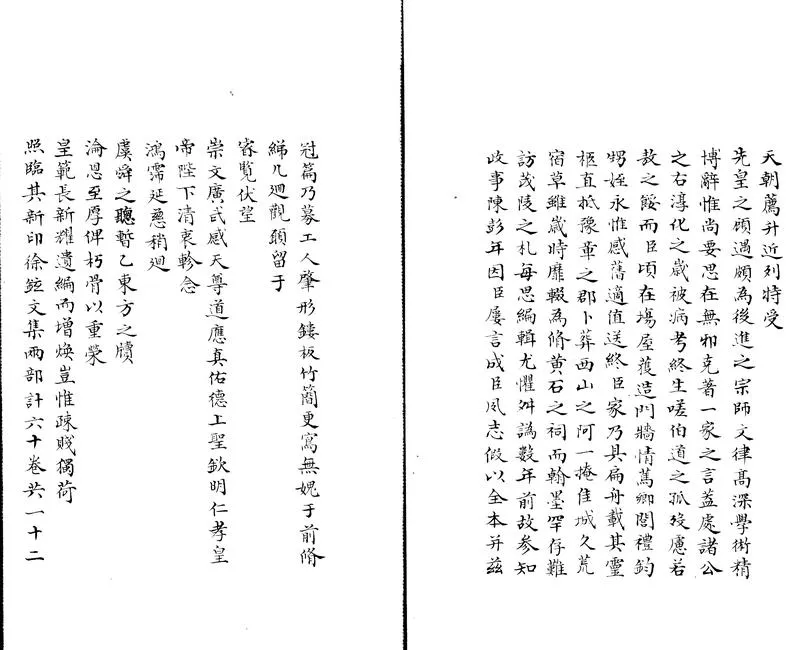 天朝薦升近列特受
先皇之顧遇頗為後進之宗師文律髙深學術精
博辭惟尚要思在無邪克著一家之言蓋處諸公
之右淳化之歲被病考終生嗟伯道之孤歿慮若
敖之餒而臣頃在場屋䕶造門牆情篤鄉閭禮鈞
甥姪永惟感舊適值送終臣家乃具扁舟載其靈
柩直抵豫章之郡卜葬西山之阿一掩佳城久荒
宿草雖歲時靡輟為脩黄石之祠而翰墨罕存難
訪茂陵之札每思編輯尤懼舛譌數年前故參知
政事陳彭年因臣屢言成臣夙志假以全本并兹
冠篇乃募工人肇形鏤板竹簡更寫無媿于前脩
綈几迴觀願留于
睿覽伏望
崇文廣武感天尊道應真佑德上聖欽明仁孝皇
帝陛下清衷軫念
鴻霈延慈稍迴
虞舜之聰暫乙東方之牘
淪恩至厚俾朽骨以重榮
皇範長新耀遺編而增煥豈惟疎賤獨荷
照臨其新印徐鉉文集兩部計六十卷共一十二